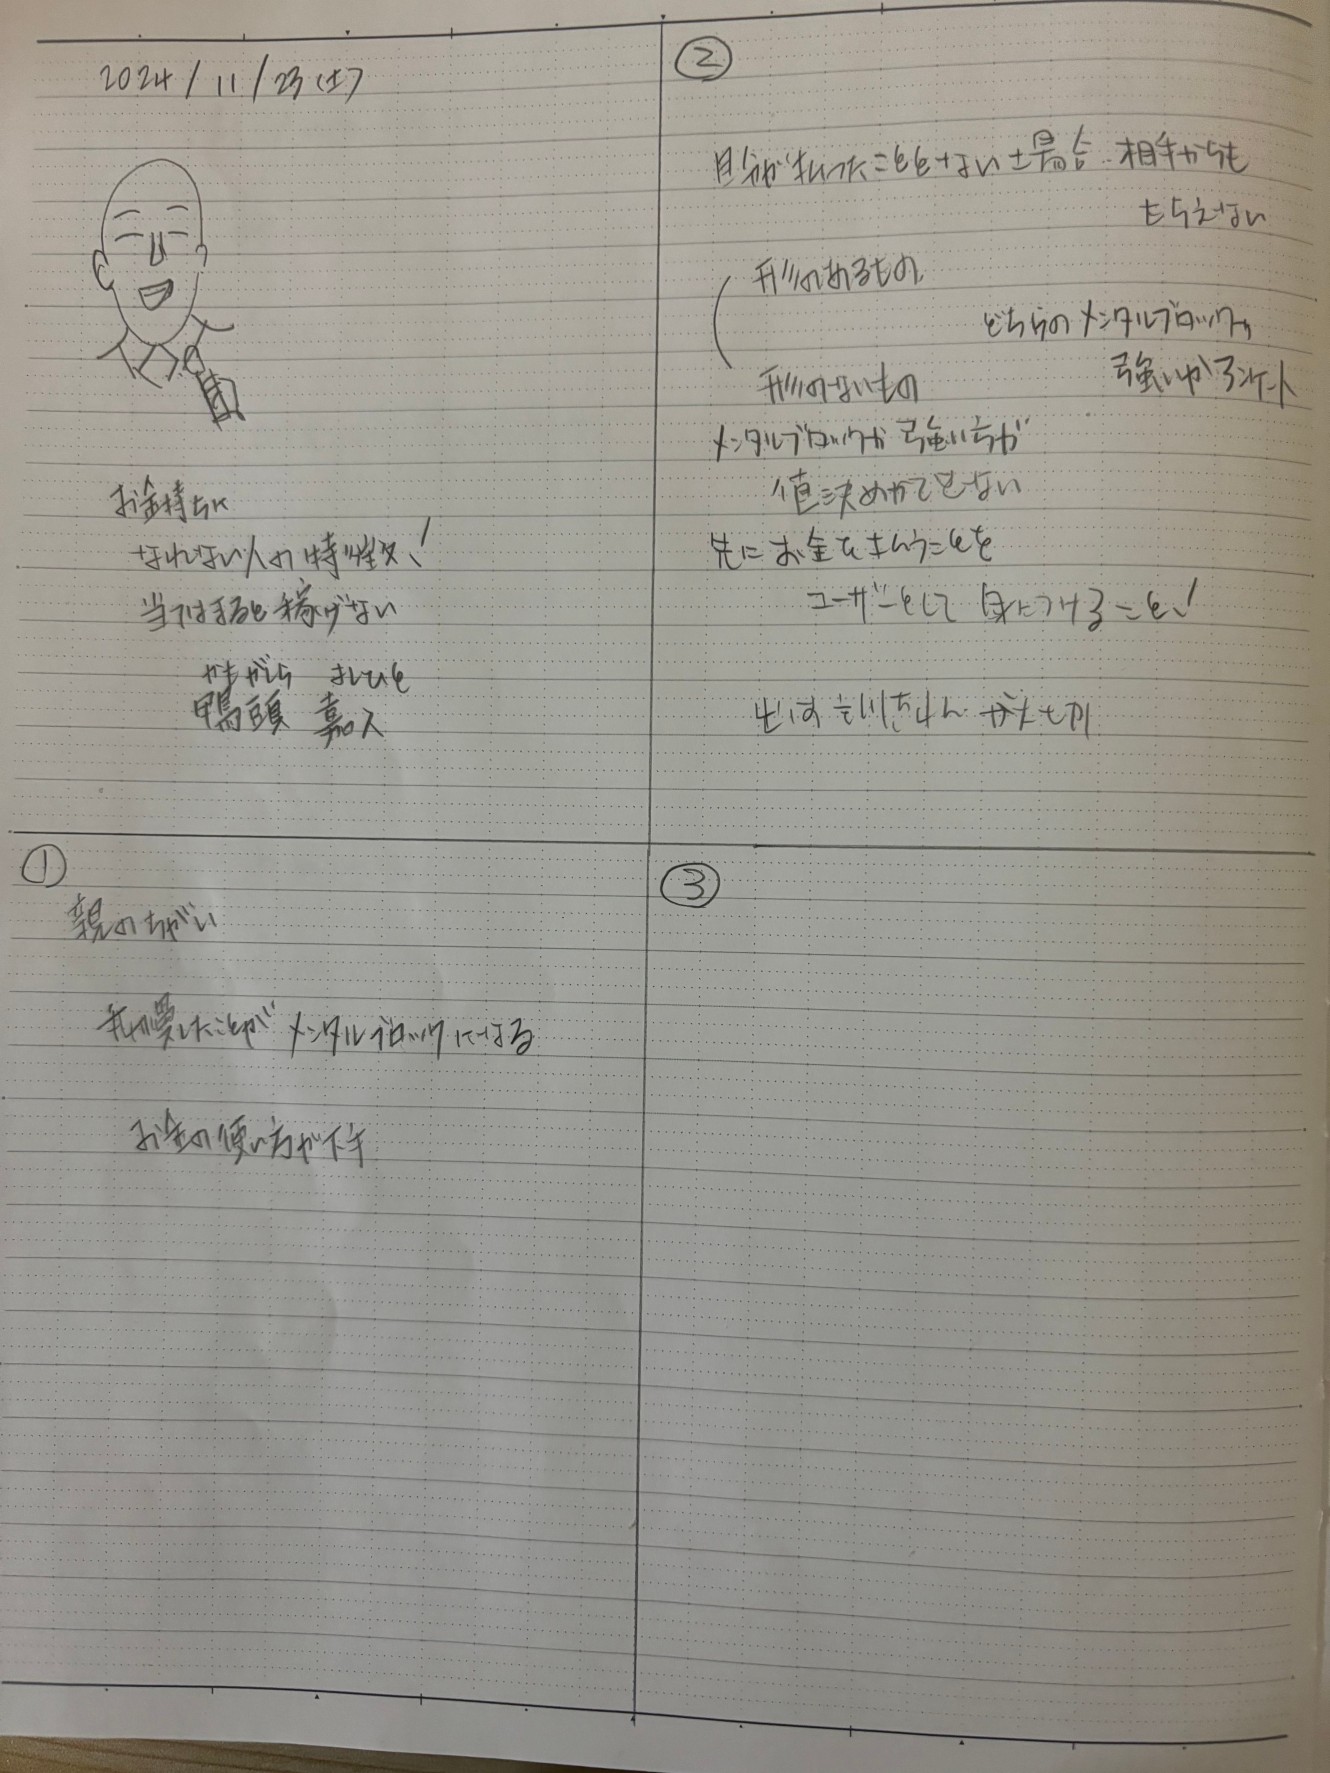 2024/11/23(土)
お金持ちに
なれない人の特徴！
当てはまると稼げない
かもがしら よしひと
鴨頭 嘉人
①
親のちがい
我慢したことがメンタルブロックになる
お金の使い方が下手
②
自分が払ったことをない場合 相手からも
もらえない
形のあるもの
どちらのメンタルブロックが
強いかアンケート
形のないもの
メンタルブロックが強い方が
値決めができない
先にお金を払うことを
ユーザーとして身につけること！
③